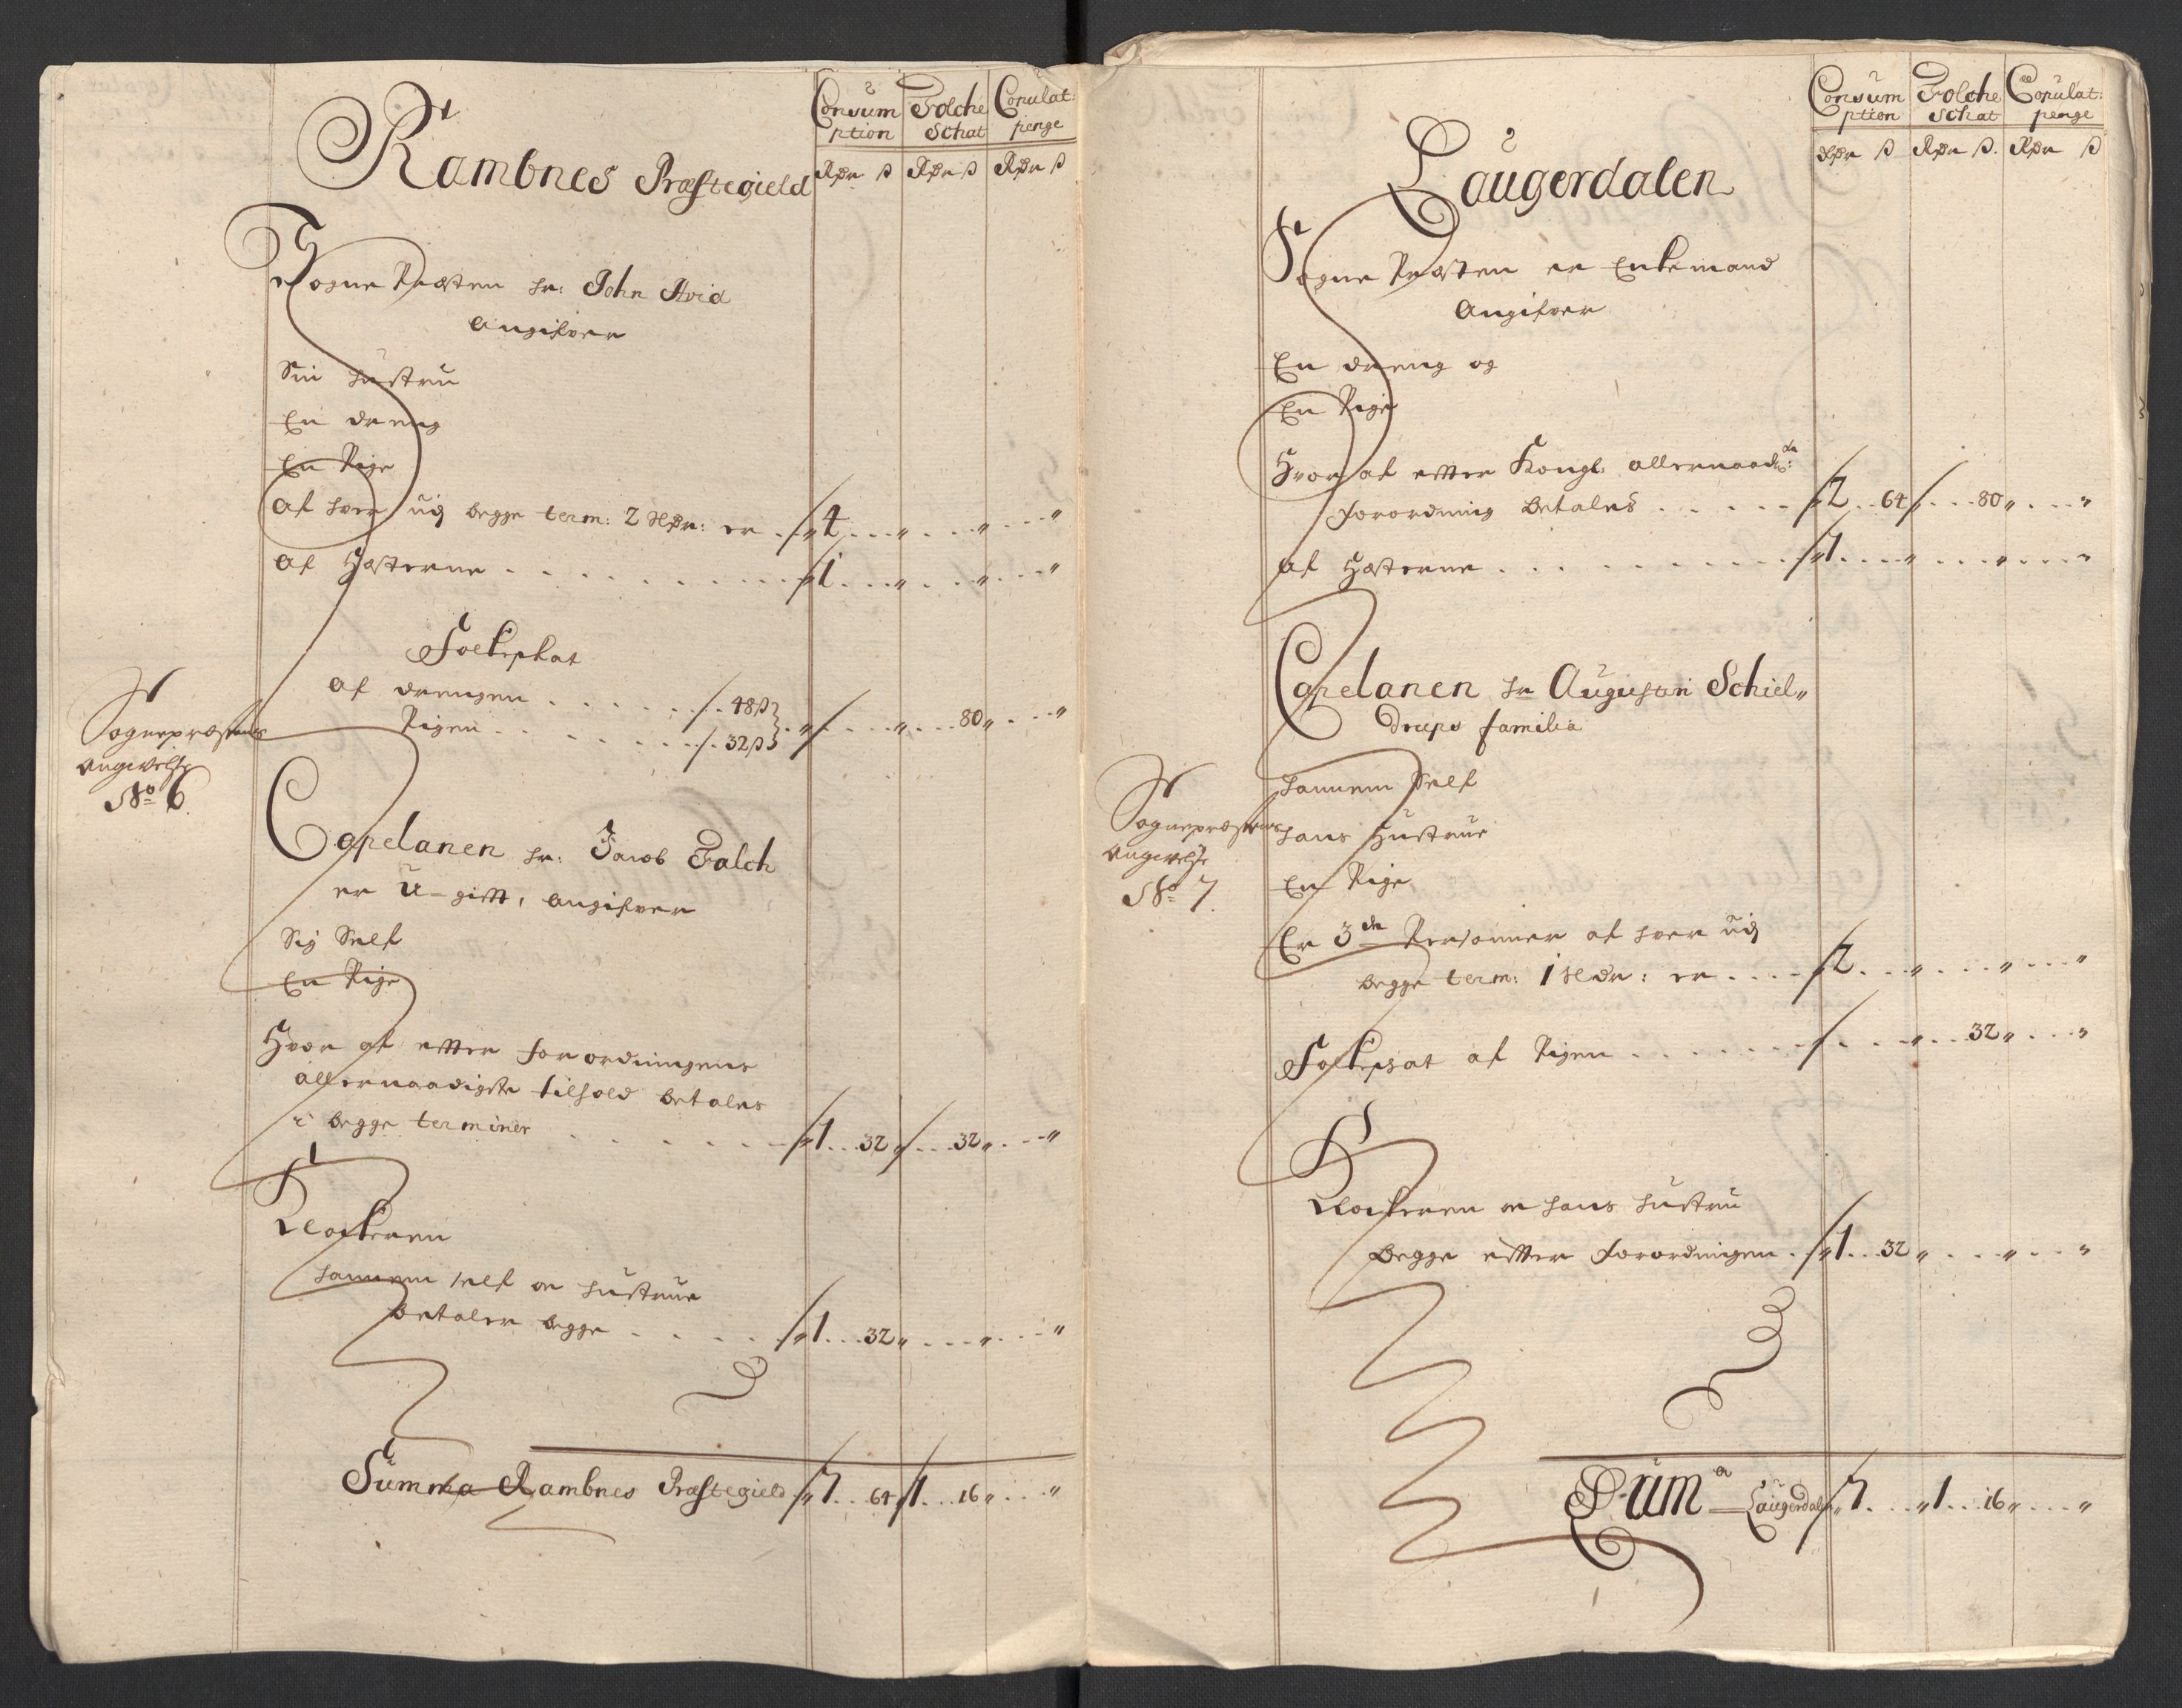 Consum Folche Copulat:
ption Schat penge
Rdr ß Rdr ß Rdr ß
Rambnes Præstegield
Sogne Præsten hr: John Arid
Angifver
Sin hustru
En dreng
En Pige
Af hver udj begge term: 2 Rdr: er . „ 4 . . . „ . . . „ . . . „
Af Hæsterne . . . . . . . . „ 1 . . . „ . . . „ . . . „
Folkeskat
Af drengen . . . . . . 48 ß
Pigen . . . . . . 32 ß } . „ . . . „ . . . 80 „ . . . „
Sognepræstens
Angivelse
No 6.
Capelanen hr: Jacob Falch
er U-gift, angifver
Sig Self
En Pige
Hvor af efter forordningens
allernaadigste tilhold betales
i begge terminer . . . . . . „ 1 . . . 32 „ . . . 32 „ . . . „
Klockeren
hannem self oc hustrue
betaler begge . . . . . „ 1 . . . 32 „ . . . „ . . . „
Summa Rambnes Præstegield . „ 7 . . 64 „ 1 . . . 16 „ . . . „
Consum Folche Copulat:
ption Schat penge
Rdr ß Rdr ß. Rdr ß
Laugerdalen
Sogne Præsten er Enkemand
Angifver
En dreng og
En Pige
Hvor af efter Kongl: allernaadste:
forordning betales . . . . . „ 2 . . 64 „ . . . 80 „ . . . „
Af Hæsterne . . . . . . . . „ 1 . . . „ . . . „ . . . „
Capelanen hr Augustin Schiel„
drups familia
hannem Self
Sognepræstens
Angivelse
No 7.
hans Hustrue
En Pige
Er 3de Personner af hver udj
begge term: 1 Rdr: er . . . . „ 2 . . . „ . . . „ . . . „
Folkeskat af Pigen . . . . . . . . . „ . . 32 „ . . . „
Klockeren oc hans hustru
begge efter forordningen . . „ 1 . . 32 „ . . . „ . . . „
Suma Laugerdalen „ 7 . . . „ 1 . . 16 „ . . . „